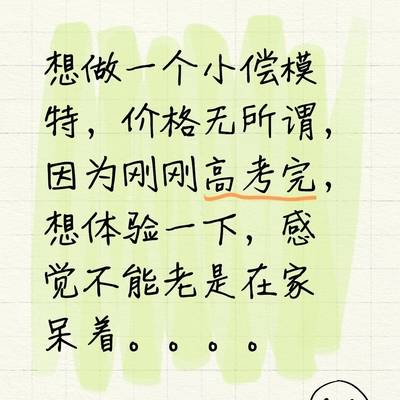 想做一个小偿模
特，价格无所谓，
因为刚刚高考完，
想体验一下，感
觉不能老是在家
呆着。。。。